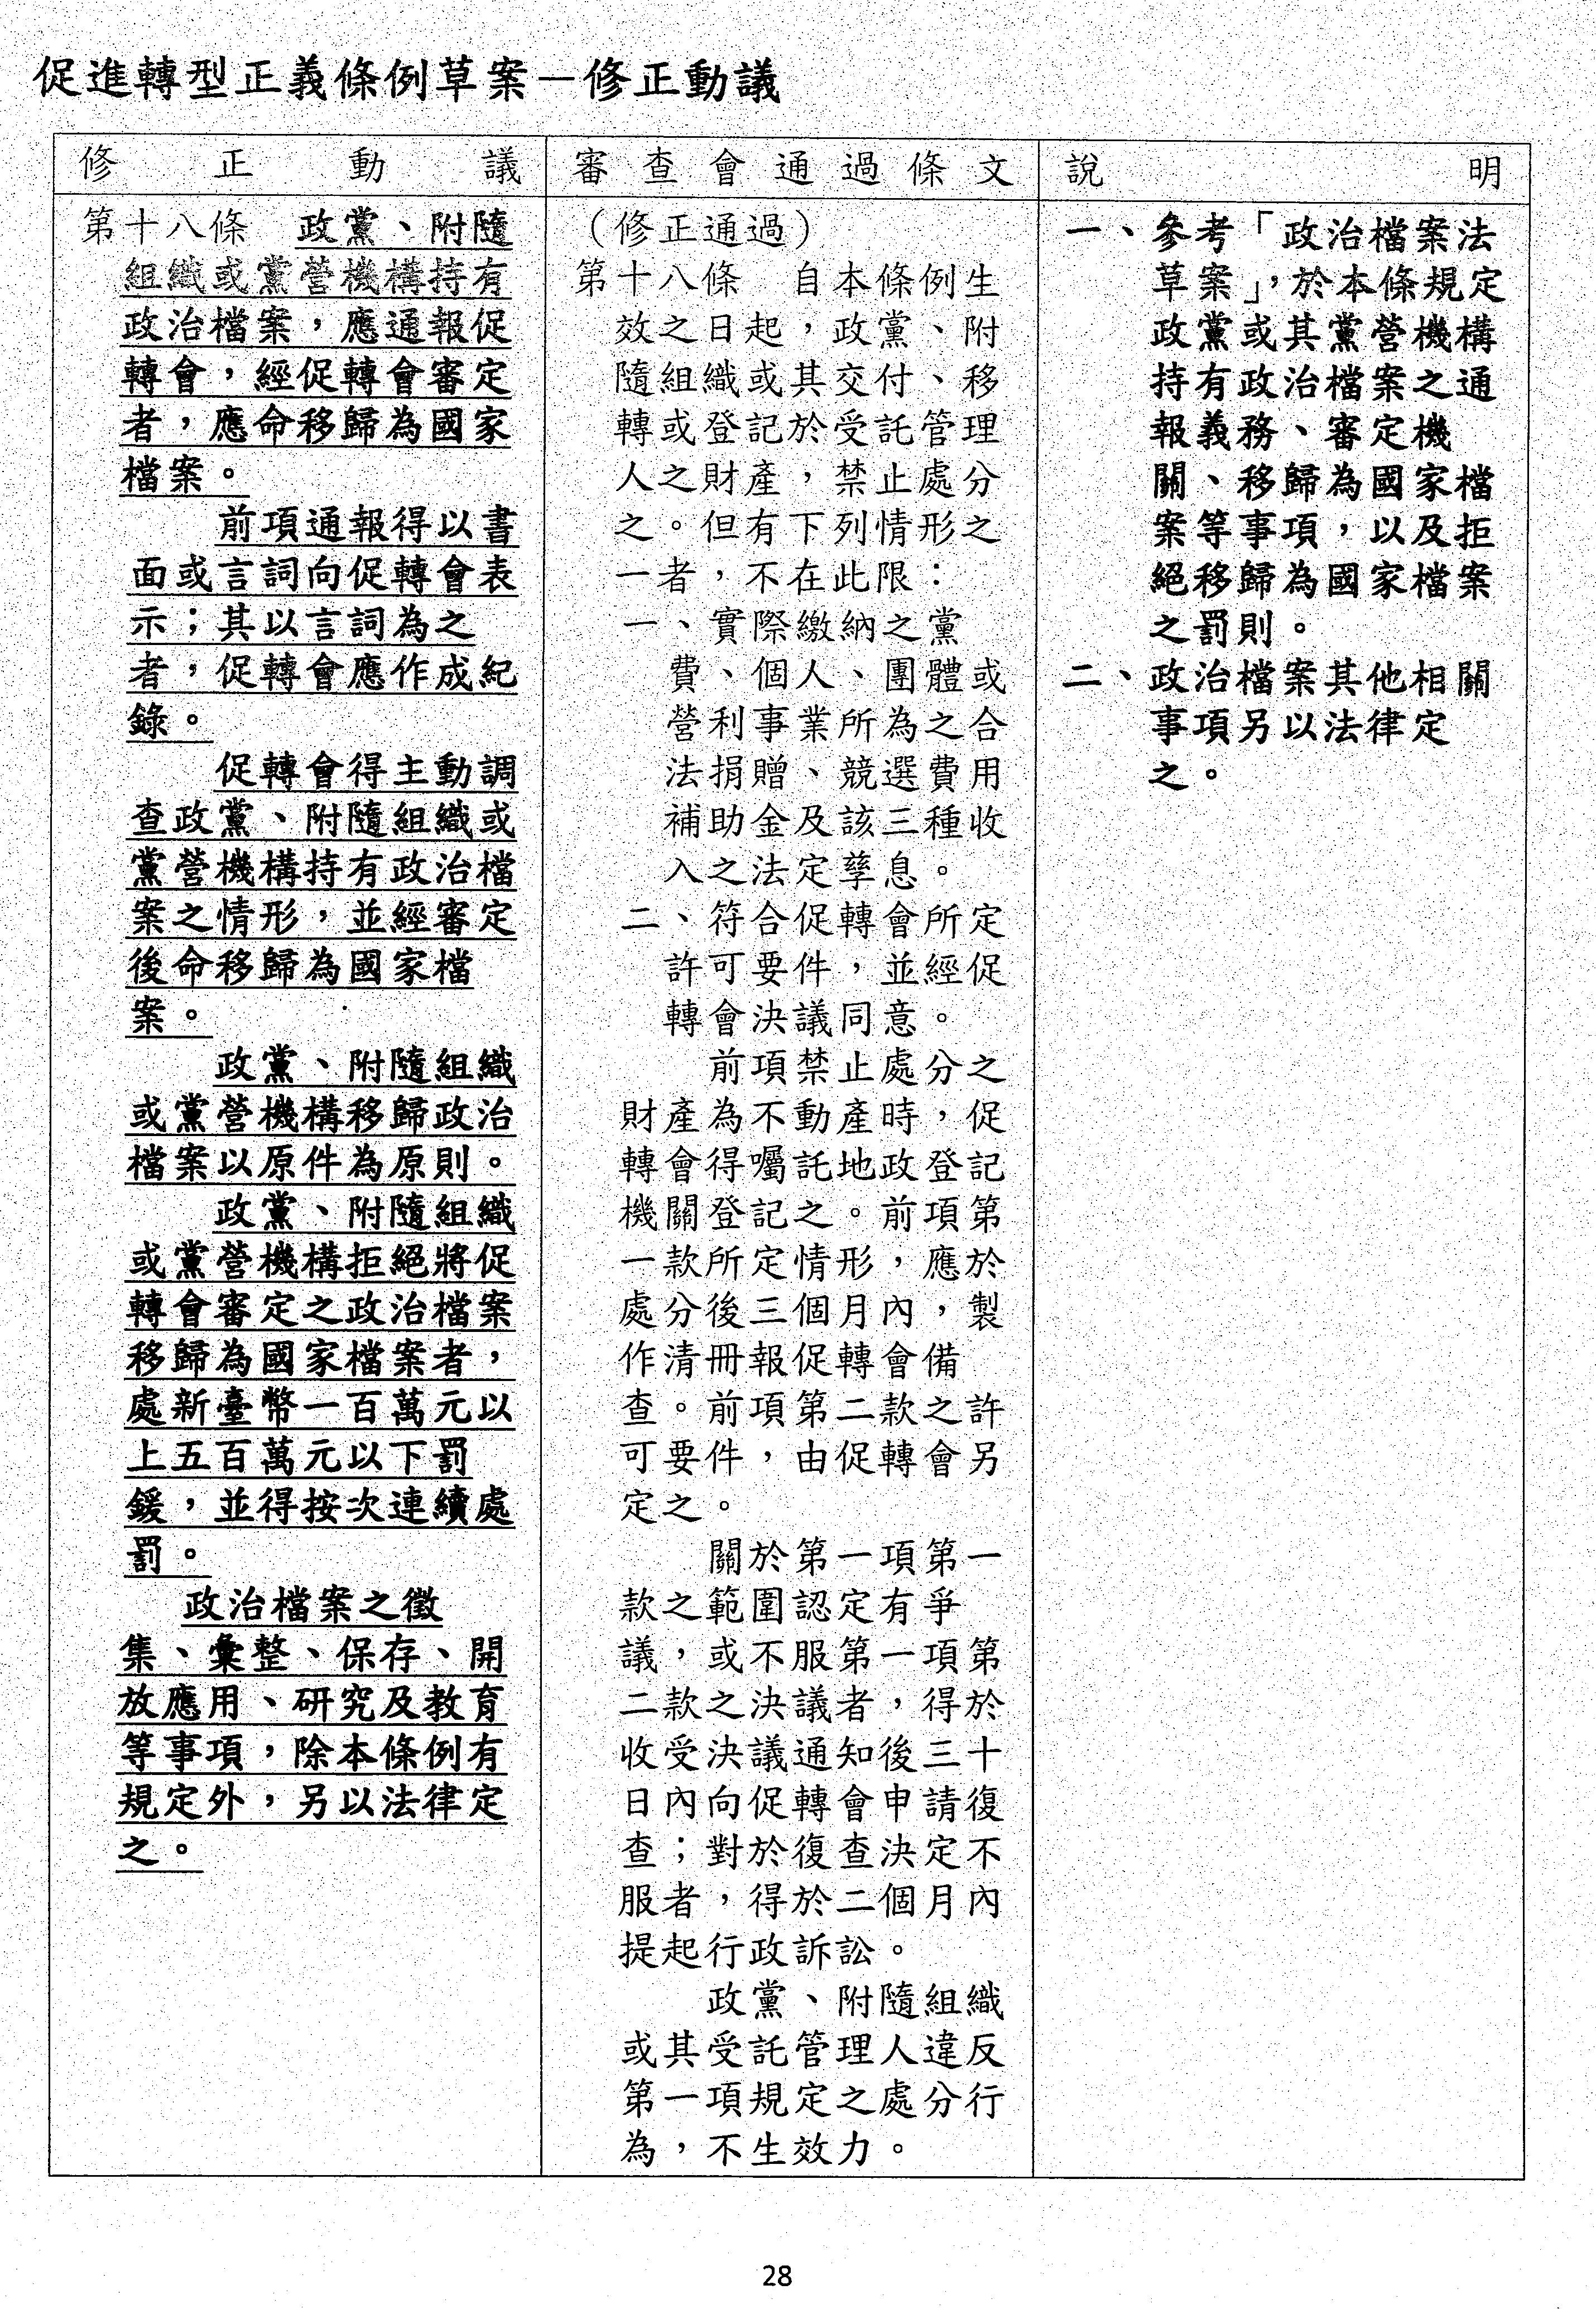 促進轉型正義條例草案－修正動議
修正動議
第十八條　政黨、附隨
組織或黨營機構持有
政治檔案，應通報促
轉會，經促轉會審定
者，應命移歸為國家
檔案。
前項通報得以書
面或言詞向促轉會表
示；其以言詞為之
者，促轉會應作成紀
錄。
促轉會得主動調
查政黨、附隨組織或
黨營機構持有政治檔
案之情形，並經審定
後命移歸為國家檔
案。
政黨、附隨組織
或黨營機構移歸政治
檔案以原件為原則。
政黨、附隨組織
或黨營機構拒絕將促
轉會審定之政治檔案
移歸為國家檔案者，
處新臺幣一百萬元以
上五百萬元以下罰
鍰，並得按次連續處
罰。
政治檔案之徵
集、彙整、保存、開
放應用、研究及教育
等事項，除本條例有
規定外，另以法律定
之。
審查會通過條文
（修正通過）
第十八條　自本條例生
效之日起，政黨、附
隨組織或其交付、移
轉或登記於受託管理
人之財產，禁止處分
之。但有下列情形之
一者，不在此限：
一、實際繳納之黨
費、個人、團體或
營利事業所為之合
法捐贈、競選費用
補助金及該三種收
入之法定孳息。
二、符合促轉會所定
許可要件，並經促
轉會決議同意。
前項禁止處分之
財產為不動產時，促
轉會得囑託地政登記
機關登記之。前項第
一款所定情形，應於
處分後三個月內，製
作清冊報促轉會備
查。前項第二款之許
可要件，由促轉會另
定之。
關於第一項第一
款之範圍認定有爭
議，或不服第一項第
二款之決議者，得於
收受決議通知後三十
日內向促轉會申請復
查；對於復查決定不
服者，得於二個月內
提起行政訴訟。
政黨、附隨組織
或其受託管理人違反
第一項規定之處分行
為，不生效力。
說明
一、參考「政治檔案法
草案」，於本條規定
政黨或其黨營機構
持有政治檔案之通
報義務、審定機
關、移歸為國家檔
案等事項，以及拒
絕移歸為國家檔案
之罰則。
二、政治檔案其他相關
事項另以法律定
之。
28